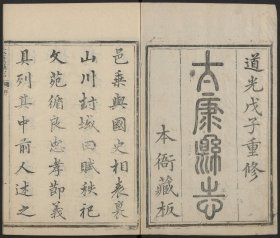 道光戊子重修
太康縣志
本衙藏板
邑乗與國史相表裏
山川封域田賦秩祀
文苑循良忠孝節義
具列其中前人述之